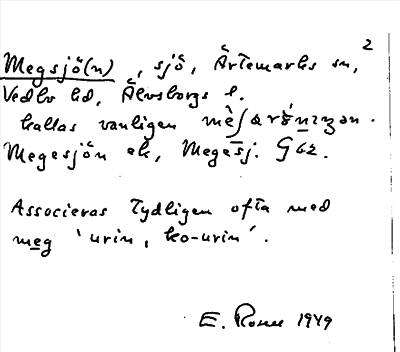 2
Megsjö(n), sjö, Ärtemarks sn,
Vedbo hd, Älvsborgs l.
kallas vanligen
Megesjön ek, Megesj. G62.
Associeras tydligen ofta med
meg 'urin, ko-urin'.
E. Rosell 1949